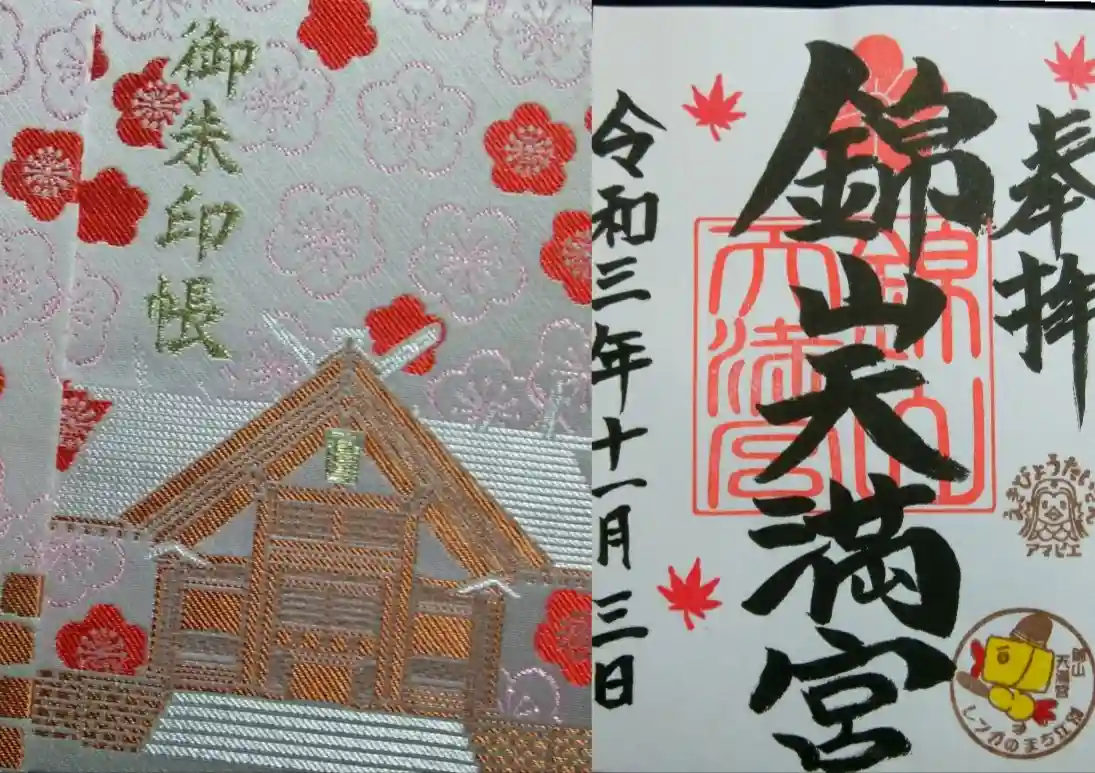 御朱印帳
奉拝
錦山天満宮
令和三年十一月三日
錦山
天満宮
えきびょうたいさん
アマビエ
錦山
天満宮
レンガのまち江別